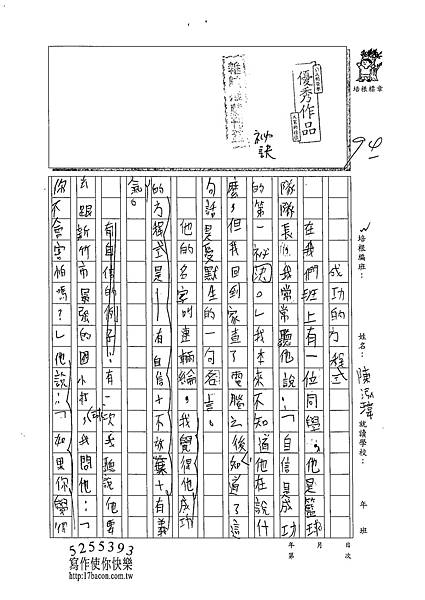 培根楷章
小太陽
優秀作品
94
祕訣
培根編班：
姓名：陳泓瑋
就讀學校：
年 班
成功的方程式
在我們班上有一位同學，他是籃球
隊隊長，我常常聽他說：「自信是成功
的第一祕訣。」我本來不知道他在說什
麼，但我回到家查了電腦之後知道了這
句話是愛默生的一句名言。
他的名字叫連
，我覺得他成功
的方程式是——有自信＋不放棄＋有義
氣。
有自信的例子：有一次我聽說他要
去跟新竹市最強的國小打球，我問他：「
你不會害怕嗎？」他說：「如果你覺得
年 月 日
第 次
5255393
寫作使你快樂
http://17bacon.com.tw